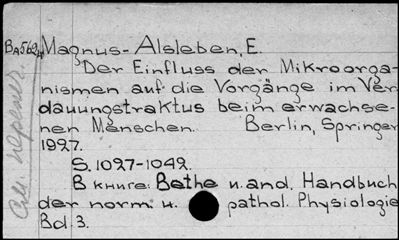 Ba562н Magnus-Alsleben, E.
Der Einfluss der Mikroorga-
nismen auf die Vorgänge im Ver
dauungstraktus beim erwachse-
nen Menschen. Berlin, Springer
1927.
S. 1027-1042.
В книге: Bethe u. and. Handbuch
der norm. u. pathol. Physiologie
Bd. 3.